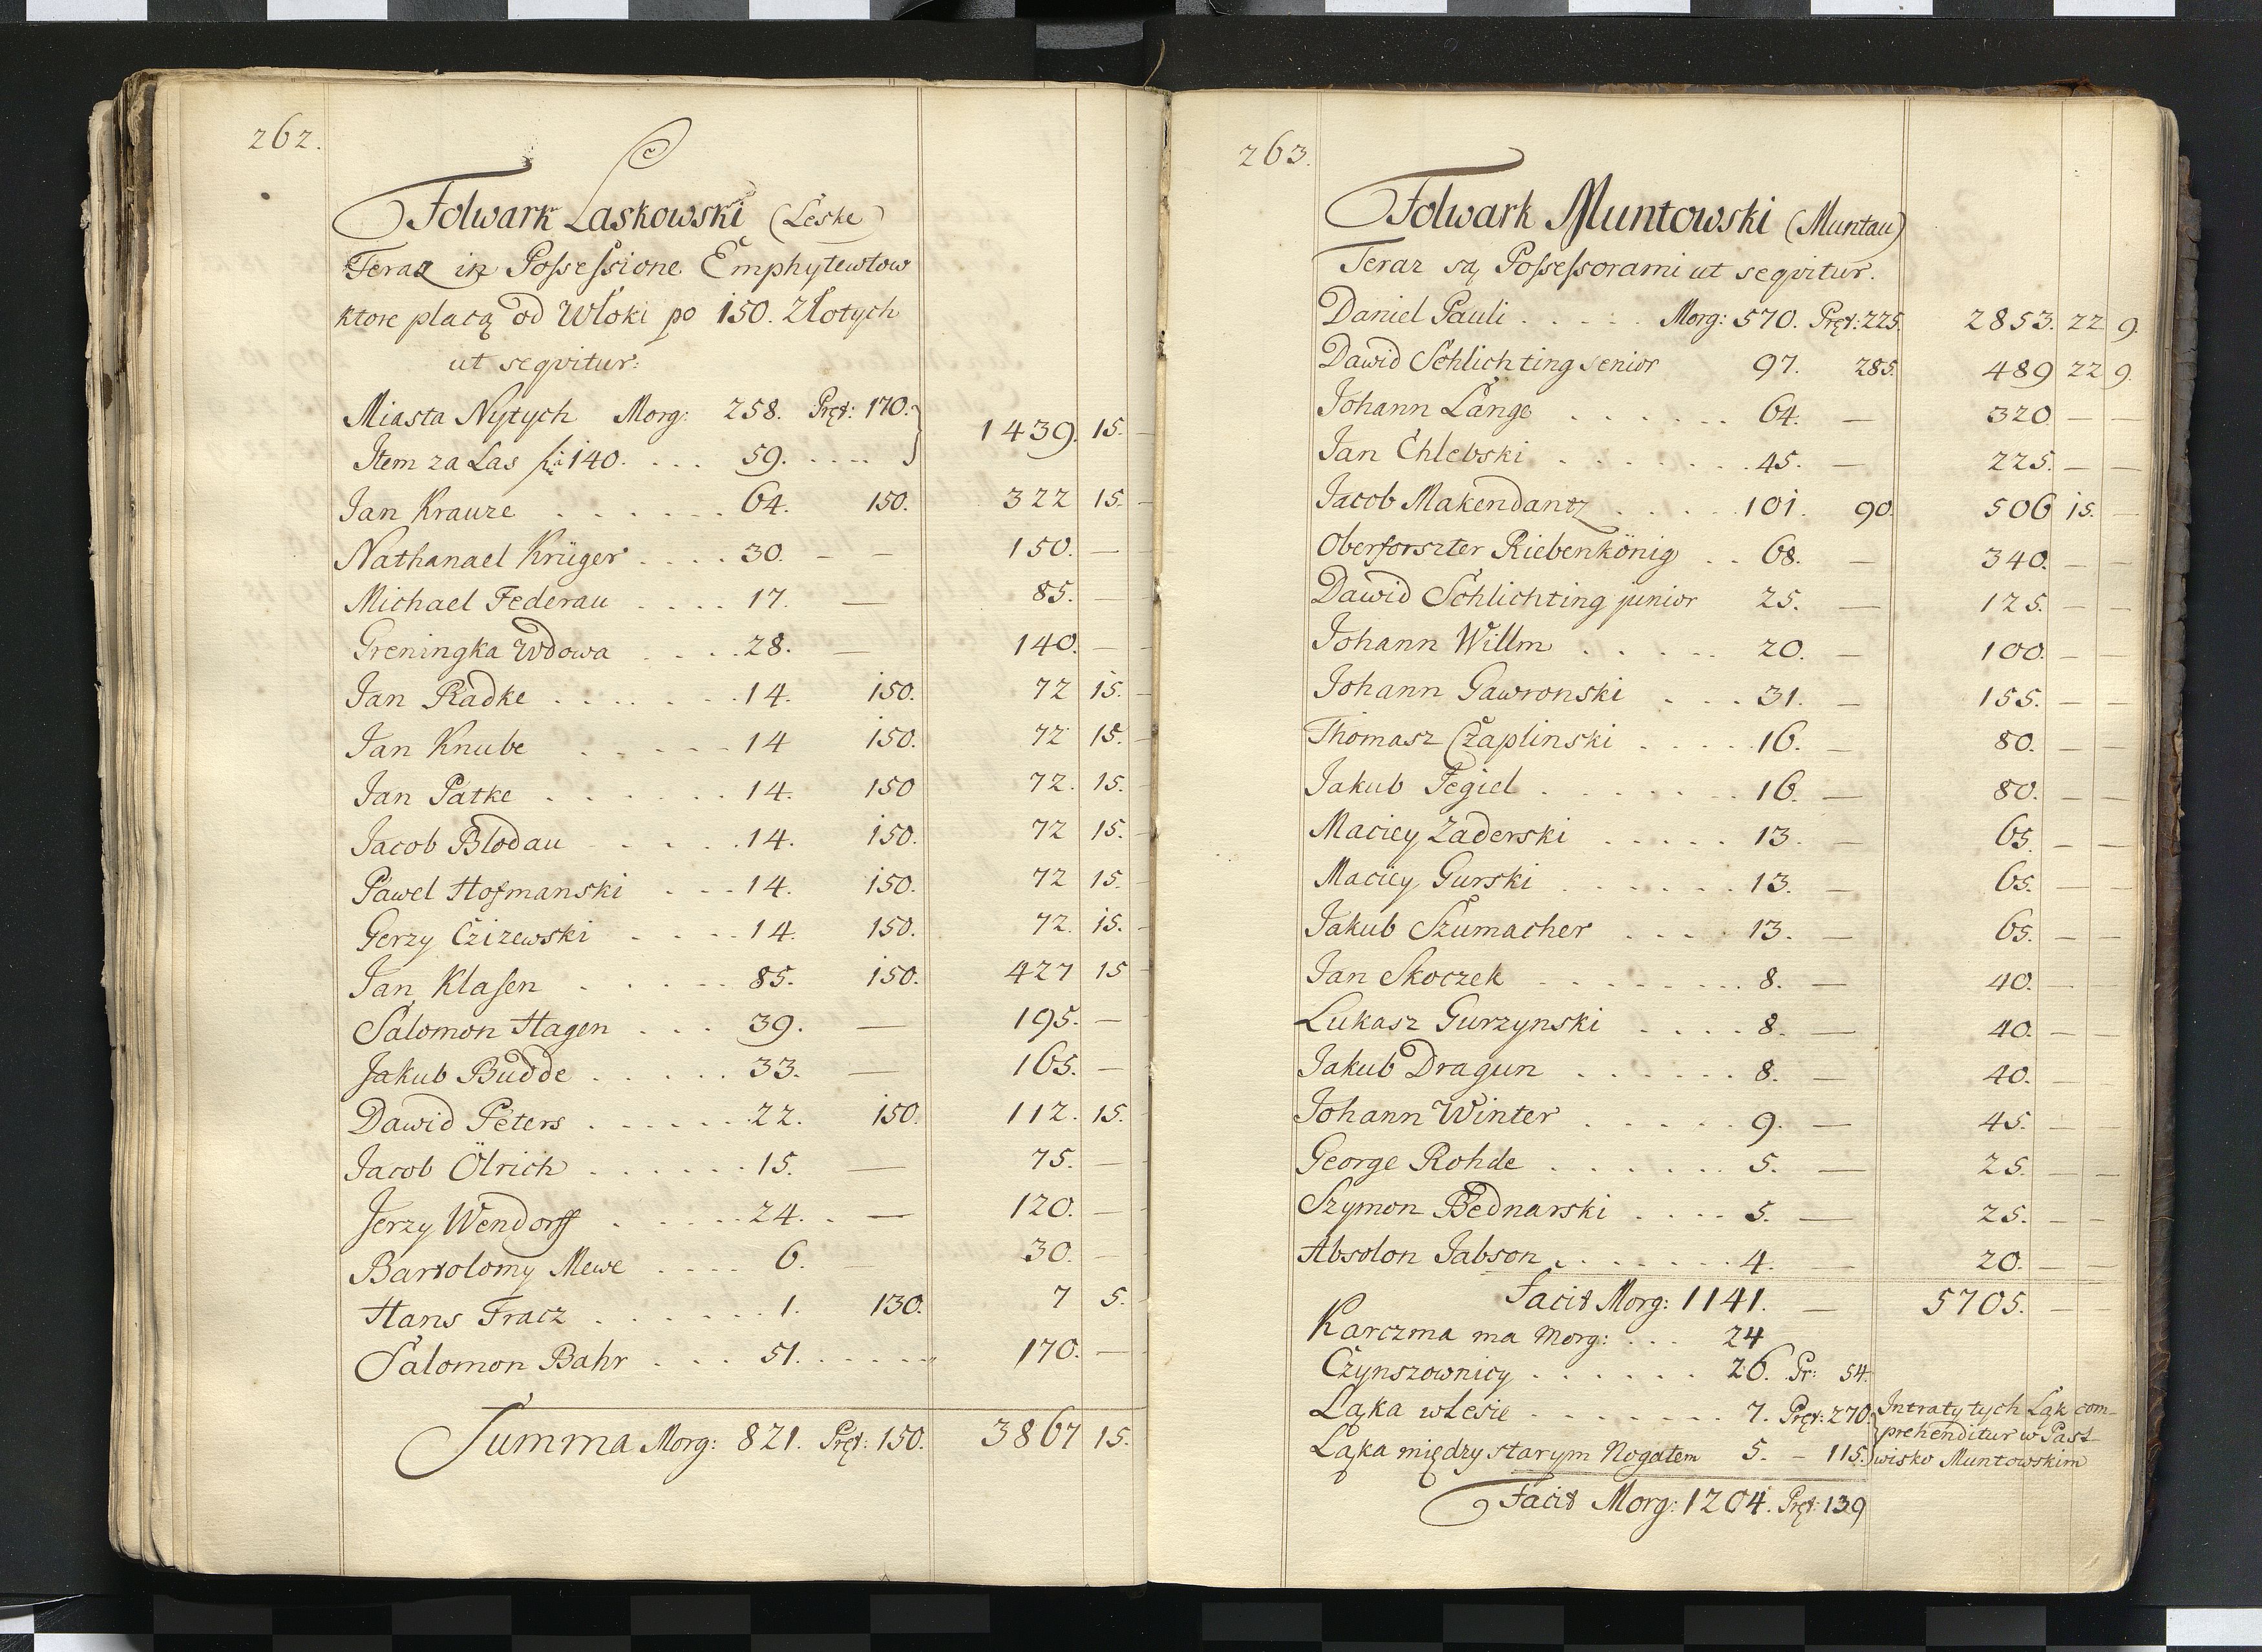 262.
Folwark Laskowski (Leske)
Teraz in Possessione Emphytewtow
ktore płacą od Włoki po 150. Złotych
ut seqvitur:
Miasta Nytych Morg: 258. Pręt: 170. 1439. 15. –
Item za Las fl: 140. . . . 59. . . . .
Jan Krauze . . . . . . 64. 150. 322 15. –
Nathanael Krüger . . . . 30. – – 150. — –
Michael Federau . . . . 17. — 85. — –
Greningka Wdowa . . . . 28. — 140. — –
Jan Radke . . . . . . . 14. 150. 72 15. –
Jan Knube . . . . . . 14 150. 72 15. –
Jan Patke . . . . . . 14. 150 72. 15. –
Jacob Blodau . . . . . 14. 150. 72 15. –
Pawel Hofmanski . . . 14. 150. 72 15. –
Gerzy Czizewski . . . . 14. 150. 72. 15. –
Jan Klasen . . . . . 85. 150. 427 15 –
Salomon Hagen . . . 39. — 195. — –
Jakub Budde . . . . . 33. — 165. –
Dawid Peters . . . . . . 22. 150. 112. 15. –
Jacob Ölrich . . . . . . 15. — 75. — –
Jerzy Wendorff . . . . . 24. . — 120. — –
Bartolomy Mewe . . . . 6. — 30. — –
Hans Fracz . . . . . . 1. 130. 7 5. –
Salomon Bahr . . . 51. . . . . . 170. — –
Summa Morg: 821. Pręt: 150. 3867 15.
263.
Folwark Muntowski (Muntau)
Teraz są Possessorami ut seqvitur.
Daniel Pauli . . . . . Morg: 570. Pręt: 225. 2853. 22 9.
Dawid Schlichting senior 97. 285. 489 22 9.
Johann Lange . . . . . . 64. — 320 — —
Jan Chlebski . . . . . . . 45. — 225. — —
Jacob Makendantz . . . . . 101. 90. 506 15. —
Oberforszter Riebenkönig . . 68. — 340. — —
Dawid Schlichting junior 25. — 125. — —
Johann Willm . . . . . 20. — 100. — —
Johann Gawronski . . . 31. — 155. — —
Thomasz Czaplinski . . . . 16. — 80. — —
Jakub Fegiel . . . . . . . 16. — 80. — —
Maciey Zaderski . . . . . 13. — 65. — —
Maciey Gurski . . . . . . 13. — 65. — —
Jakub Szumacher . . . . 13. — 65. — —
Jan Skoczek . . . . . . . . 8. — 40. — —
Lukasz Gurzynski . . . . 8. — 40. — —
Jakub Dragun . . . . . . 8. — 40. — —
Johann Winter . . . . . 9. — 45. — —
George Rohde . . . . . . 5. — 25. — —
Szymon Bednarski . . . . 5. — 25. — —
Absolon Jabson . . . . . . . 4. — 20. — —
Facit Morg: 1141. — 5705. — —
Karczma ma Morg: . . . 24
Czynszownicy . . . . . . 26. Pr: 54.
Ląka w lesie . . . . . . . 7. Pręt: 270. Intraty tych Ląk com-
prehenditur w Past-
Ląka między starym Nogatem 5. – 115. wisko Muntowskim
Facit Morg: 1204. Pręt: 139